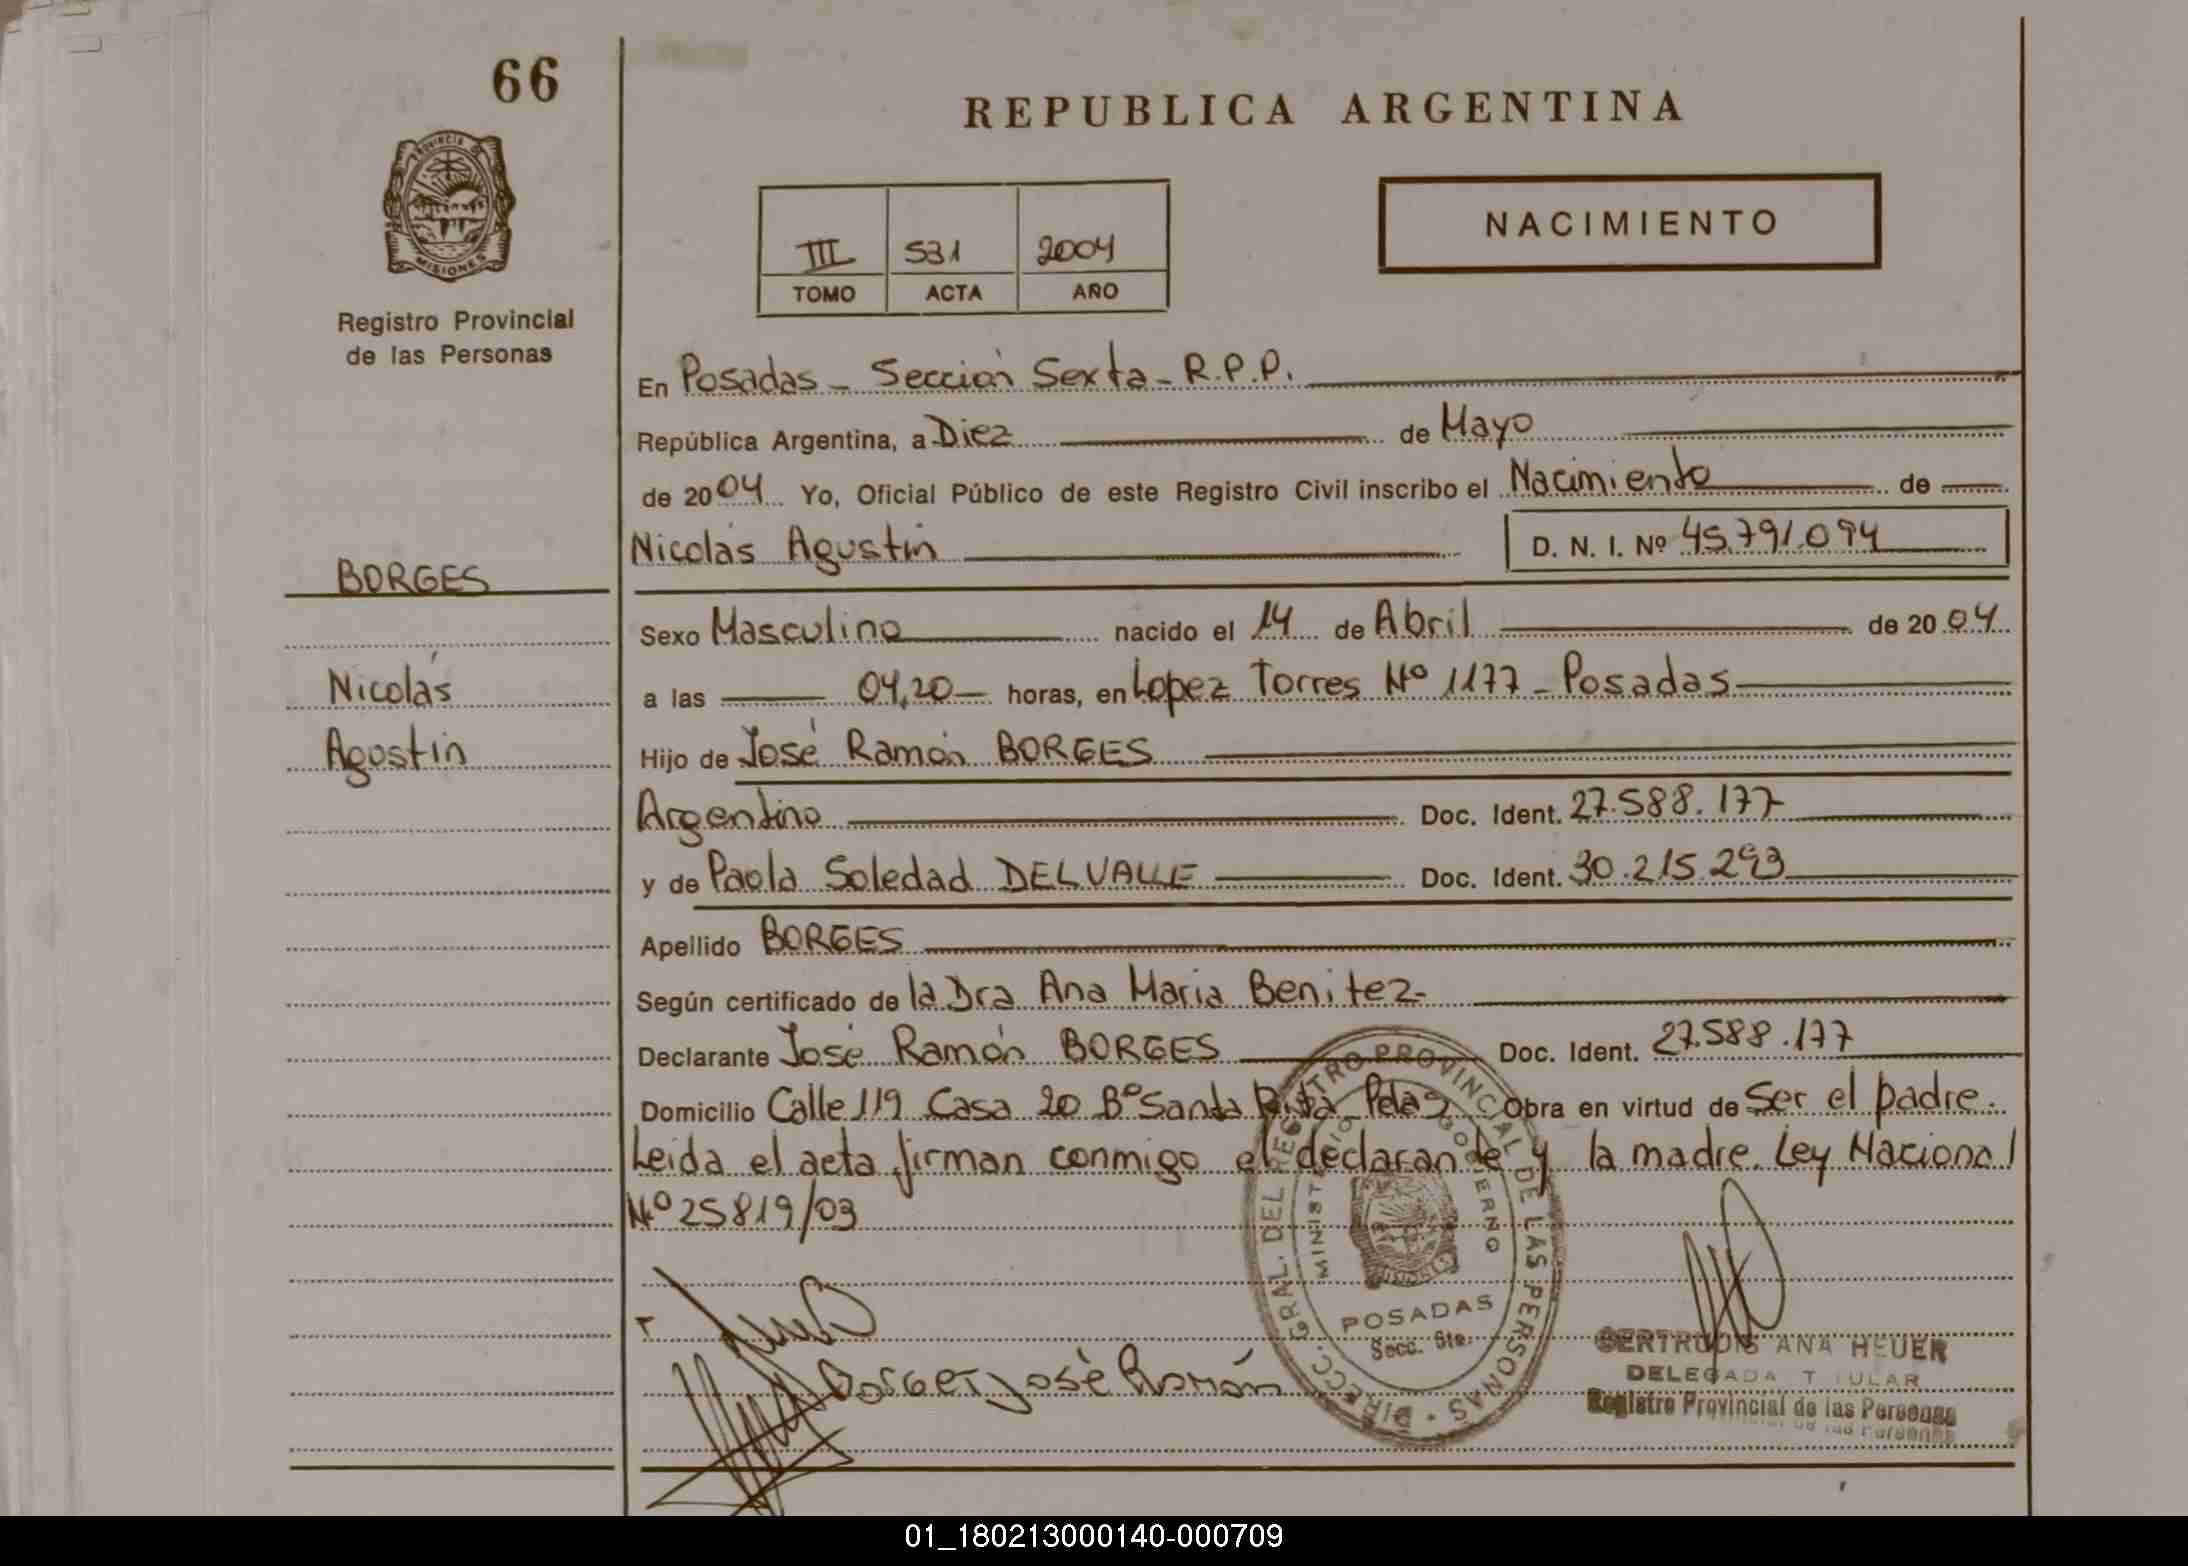 66
REPUBLICA ARGENTINA
PROVINCIA DE
MISIONES
Registro Provincial
de las Personas
III 531 2004
TOMO ACTA AÑO
NACIMIENTO
En Posadas - Sección Sexta - R.P.P.
República Argentina, a Diez de Mayo
de 2004 Yo, Oficial Público de este Registro Civil inscribo el Nacimiento de
Nicolás Agustín D. N. I. Nº 45.791.094
BORGES
Nicolás
Agustín
Sexo Masculino nacido el 14 de Abril de 2004
a las 04,20 horas, en Lopez Torres Nº 1177 - Posadas
Hijo de José Ramón BORGES
Argentino Doc. Ident. 27.588.177
y de Paola Soledad DELVALLE Doc. Ident. 30.215.293
Apellido BORGES
Según certificado de la Dra Ana Maria Benitez
Declarante José Ramón BORGES Doc. Ident. 27.588.177
Domicilio Calle 119 Casa 20 Bº Santa Rita Pdas Obra en virtud de Ser el padre.
Leida el acta firman conmigo el declarante y la madre. Ley Nacional
Nº 25819/03
Borges José Ramón
DIRECC. GRAL. DEL REGISTRO PROVINCIAL DE LAS PERSONAS
MINISTERIO GOBIERNO
MISIONES
POSADAS
Secc. 6ta.
GERTRUDIS ANA HEUER
DELEGADA TITULAR
Registro Provincial de las Personas
de las Personas
01_180213000140-000709